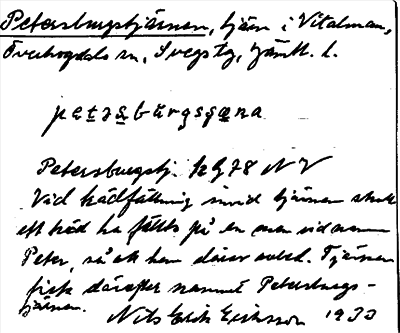 Petersburgstjärnen, tjärn i Vitalman,
Överhogdals sn, Svegs tg, Jämtl. l.
petəsburgsçæna
Petersburgstj. 12 G 78 NV
Vid trädfällning invid tjärnen skall
ett träd ha fällts på en man vid namn
Peter, så att han därav avled. Tjärnen
fick därefter namnet Petersburgs-
tjärnen.
Nils Erik Eriksson 1933